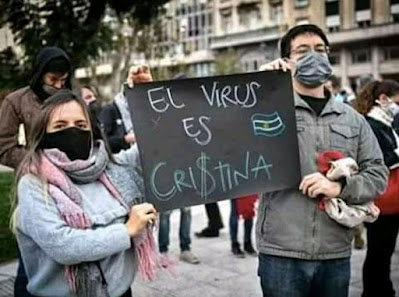 EL VIRUS
ES
CRI$TINA